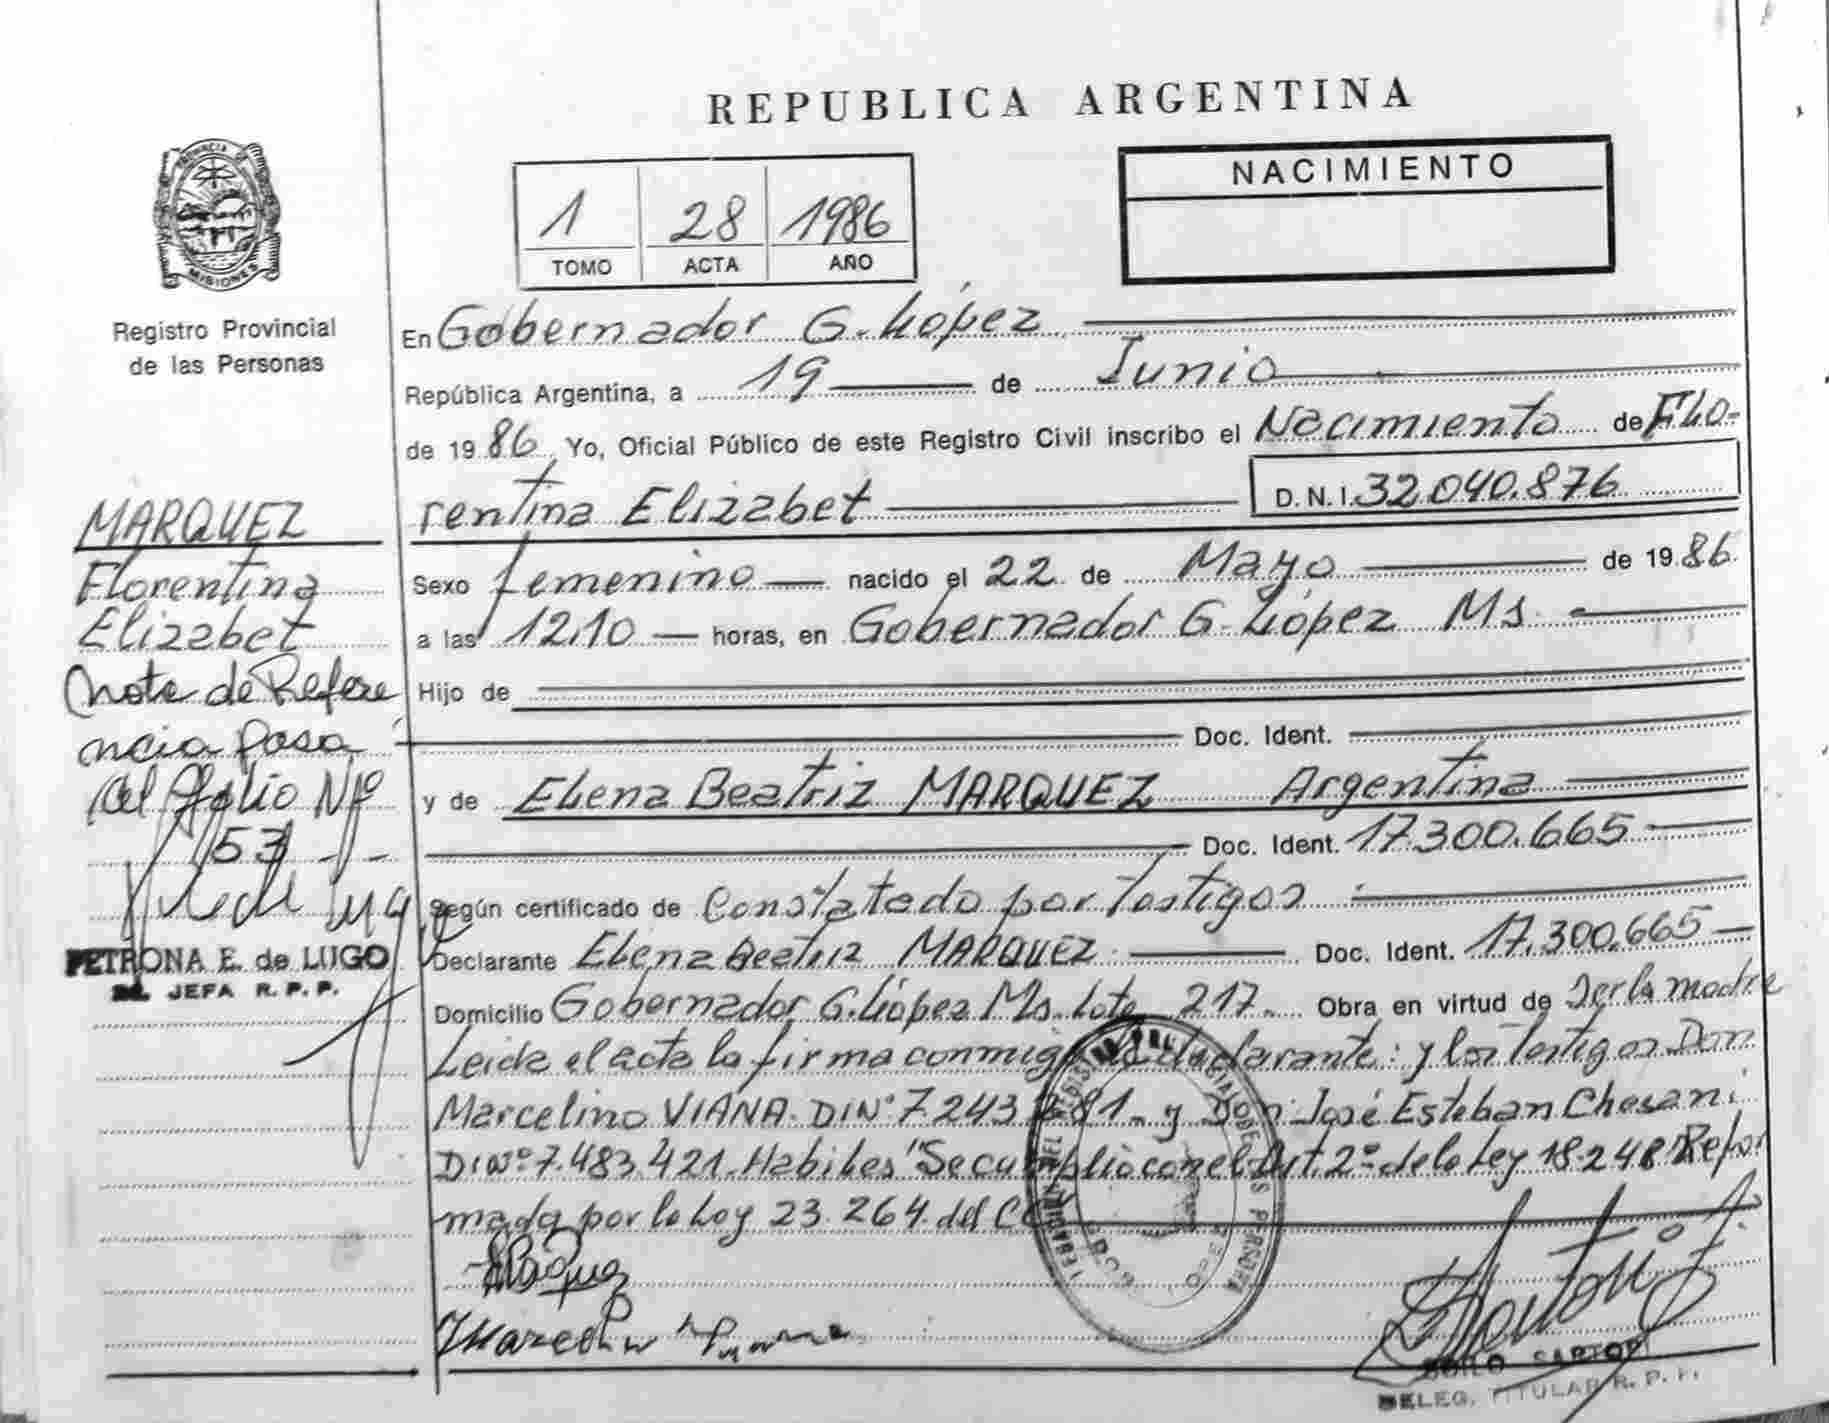 REPUBLICA ARGENTINA
PROVINCIA DE
MISIONES
Registro Provincial
de las Personas
1 28 1986
TOMO ACTA AÑO
NACIMIENTO
En Gobernador G. López
República Argentina, a 19 de Junio
de 1986 Yo, Oficial Público de este Registro Civil inscribo el Nacimiento de Flo-
rentina Elizabet D.N.I. 32.040.876
Sexo femenino nacido el 22 de Mayo de 1986
a las 12,10 horas, en Gobernador G. López Ms
Hijo de
Doc. Ident.
y de Elena Beatriz MARQUEZ Argentina
Doc. Ident. 17.300.665
Según certificado de Constatado por testigos
Declarante Elena Beatriz MARQUEZ Doc. Ident. 17.300.665
Domicilio Gobernador G. López Ms. Lote 217 Obra en virtud de Ser la madre
Leida el acta la firma conmigo la declarante: y los testigos Don
Marcelino VIANA. DIN° 7.243. 81 y Don José Esteban Chesani
DIN° 7.483.421. Habiles Se cumplio con el Art 2° de la Ley 18.248 Refor
mada por la Ley 23.264 del
MARQUEZ
Florentina
Elizabet
Nota de Refere
ncia pasa
al folio N°
53
PETRONA E. de LUGO
JEFA R. P. P.
SARTORI
DELEG. TITULAR R. P. P.